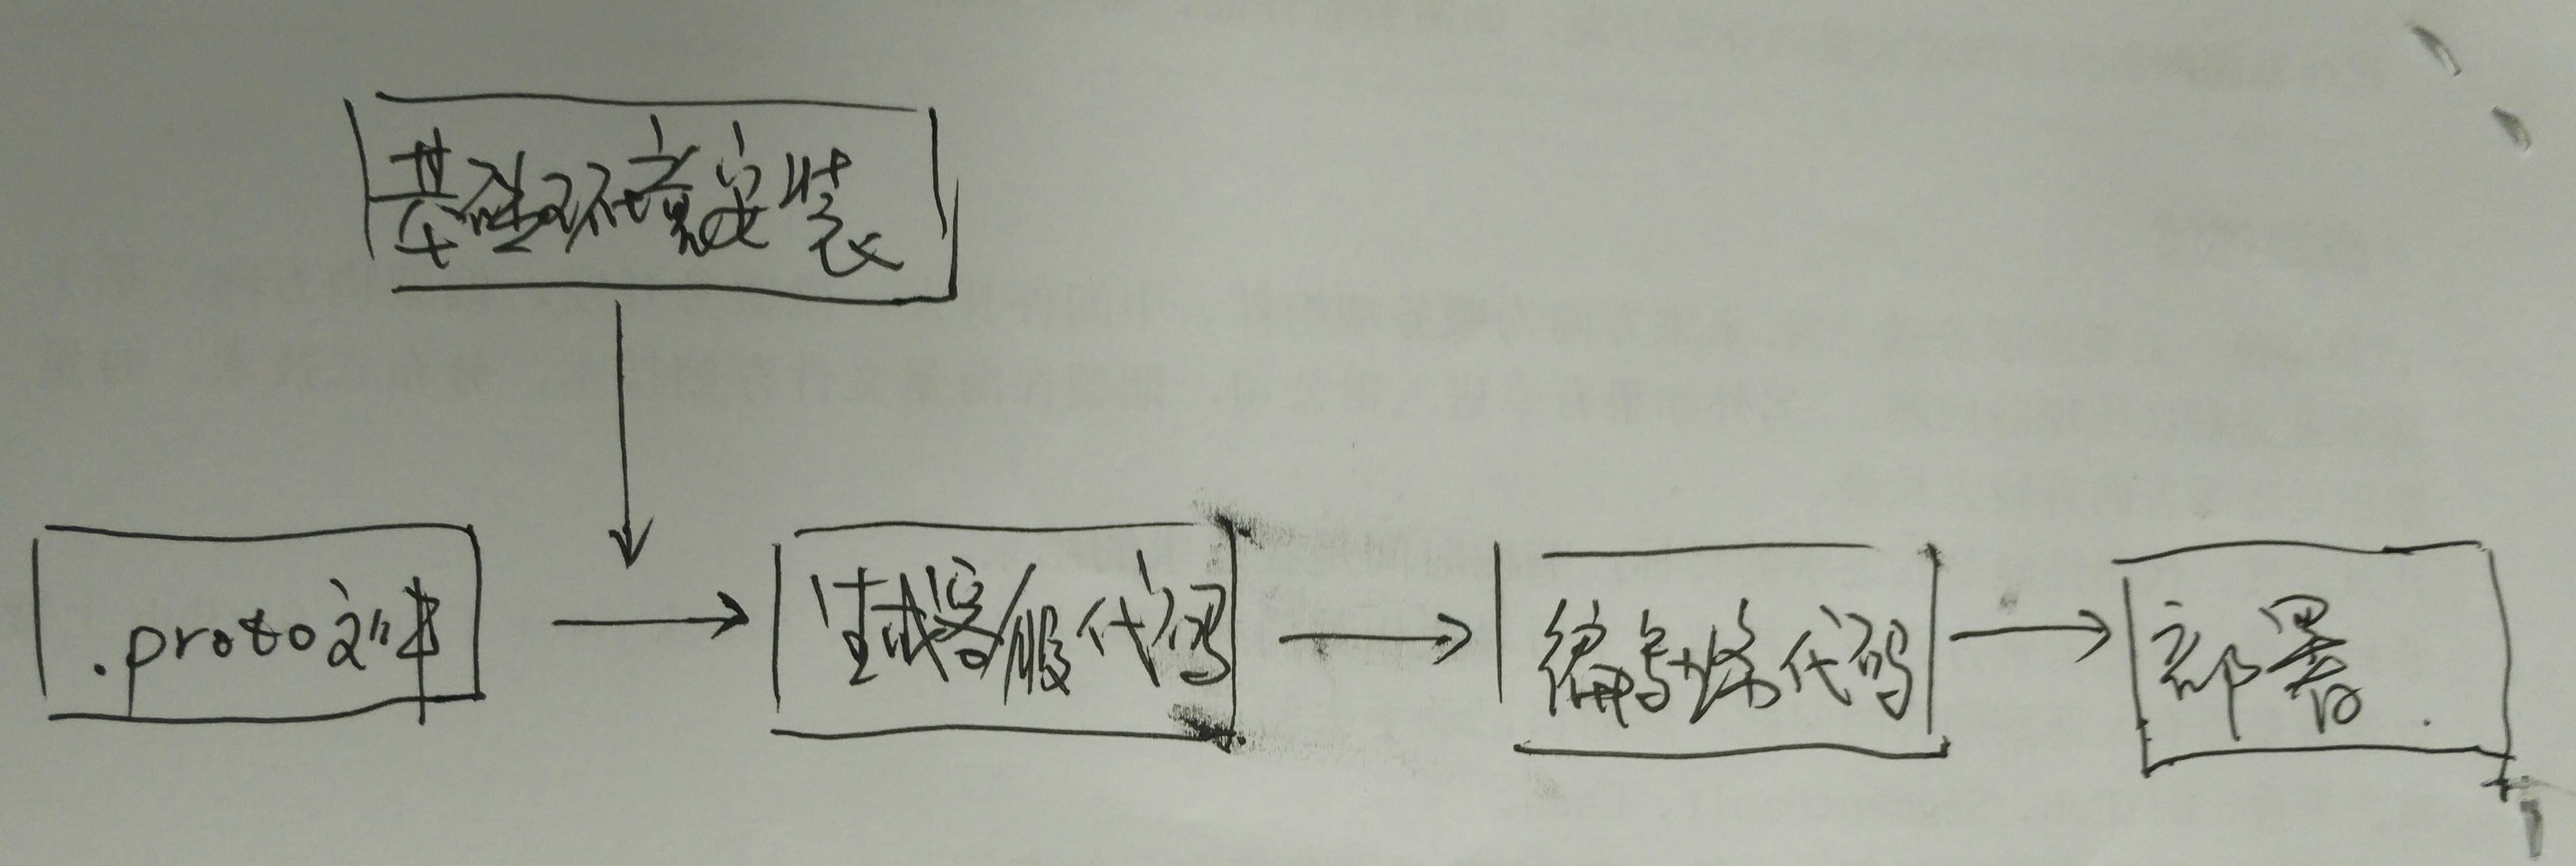 基础环境安装
.proto文件
生成客/服代码
编写业务代码
部署